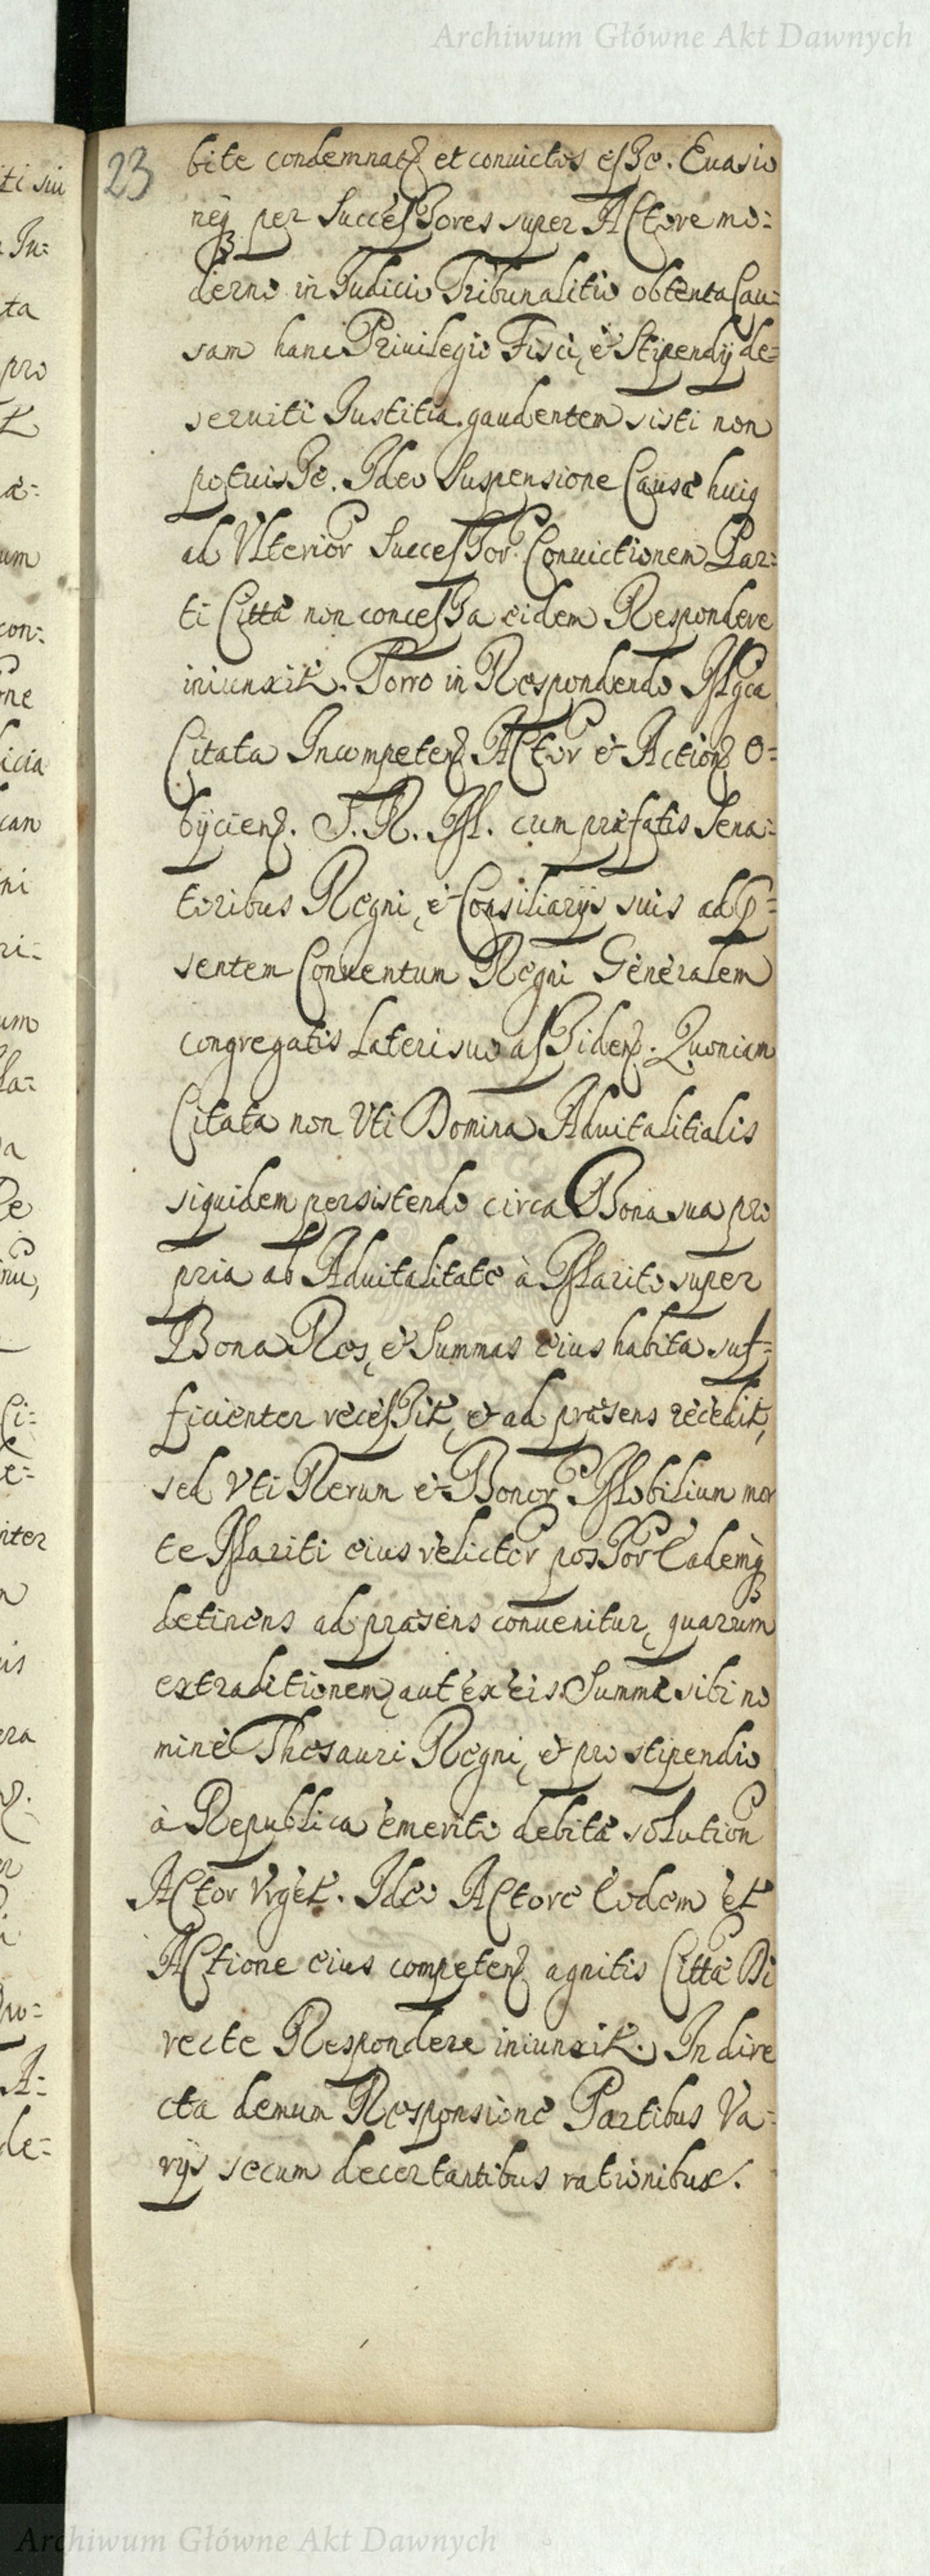 Archiwum Główne Akt Dawnych
23
bite condemnatꝫ et convictos esse. Evasio
neq per Successores super Actore mo:
derno in Judicio Tribunalitio obtenta Cau:
sam hanc Privilegio Fisci, et Stipendij de:
serviti Justitia gaudentem sisti non
potuisse. Ideo Suspensione Causæ huiq
ad Ulterior Successor Convictionem Par:
ti Cittæ non concessa eidem Respondere
iniunxit. Porro in Respondendo
Citata Incompetenꝫ Actor et Actionꝫ o:
bijcienꝫ. S. R. M. cum præfatis Sena:
toribus Regni, et Consiliarijs suis ad p:
sentem Conventum Regni Generalem
congregatis Lateri suo assidenꝫ. Quoniam
Citata non Uti Domina Advitalitialis
siquidem persistendo circa Bona sua pro
pria ab Advitalitate à Marito super
Bona Res, et Summas eius habita suf:
ficienter recessit, et ad præsens recedit,
sed Uti Rerum et Bonor Mobilium mor
te Mariti eius relictor possor Eademq
detinens ad præsens convenitur, quarum
extraditionem, aut ex eis Summæ sibi no
mine Thesauri Regni, et pro stipendio
à Republica emerito debitæ solution
Actor Urget. Ideo Actore Eodem et
Actione eius competenꝫ agnitis Cittæ Di
recte Respondere iniunxit. In dire
cta demum Responsione Partibus Va:
rijs secum decertantibus rationibus.
ti sui
ta
pro
um
con:
one
licia
can
ni
ri:
um
la:
a
Ci:
e:
nter
n
is
era
A:
de:
Archiwum Główne Akt Dawnych